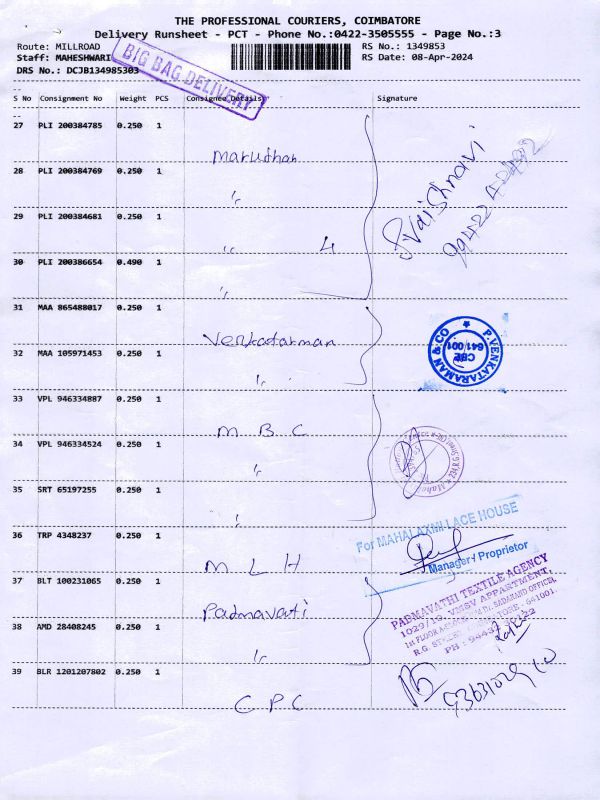 THE PROFESSIONAL COURIERS, COIMBATORE
Delivery Runsheet - PCT - Phone No.:0422-3505555 - Page No.:3
Route: MILLROAD
RS No.: 1349853
Staff: MAHESHWARI
RS Date: 08-Apr-2024
DRS No.: DCJB134985303
BIG BAG DELIVERY
S No Consignment No Weight PCS Consignee Details Signature
27 PLI 200384785 0.250 1
Maruthan
28 PLI 200384769 0.250 1
"
29 PLI 200384681 0.250 1
" 4
30 PLI 200386654 0.490 1
"
Vaishnavi
31 MAA 865488017 0.250 1
Venkatarman
32 MAA 105971453 0.250 1
"
P.VENKATARAMAN & CO
CBE
641 001
33 VPL 946334887 0.250 1
M B C
34 VPL 946334524 0.250 1
"
35 SRT 65197255 0.250 1
"
36 TRP 4348237 0.250 1
M L H
For MAHALAXMI LACE HOUSE
Manager / Proprietor
37 BLT 100231065 0.250 1
Padmavati
38 AMD 28408245 0.250 1
"
PADMAVATHI TEXTILE AGENCY
1029/10, VMSV APPARTMENT,
1st FLOOR
R.G. - 641001.
PH : 94437
39 BLR 1201207802 0.250 1
C P C